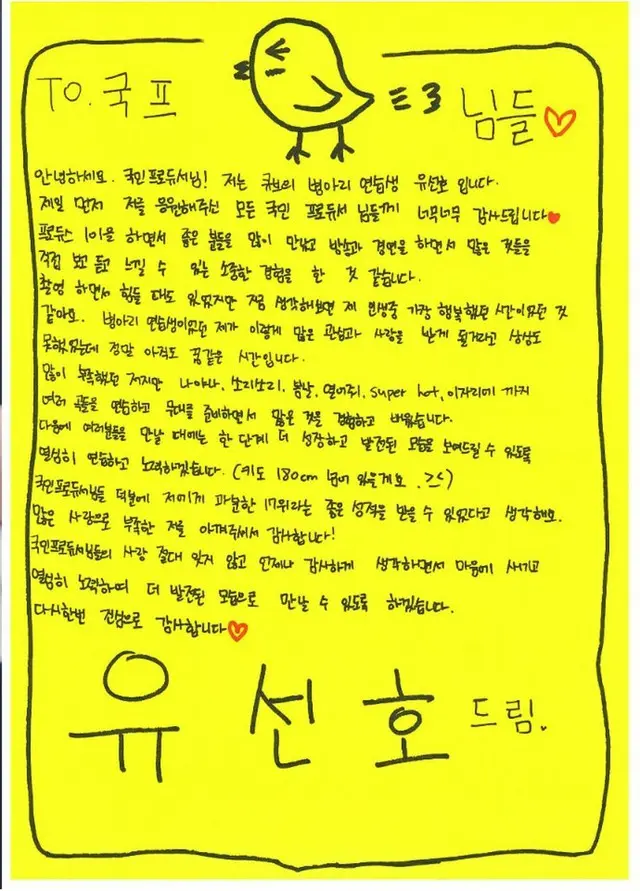 TO. 국프 님들♡
안녕하세요. 국민프로듀서님! 저는 큐브의 병아리 연습생 유선호 입니다.
제일 먼저 저를 응원해주신 모든 국민 프로듀서 님들께 너무너무 감사드립니다♥
프로듀스 101을 하면서 좋은 분들을 많이 만났고 방송과 경연을 하면서 많은 것들을
직접 보고 듣고 느낄 수 있는 소중한 경험을 한 것 같습니다.
촬영 하면서 힘들 때도 있었지만 지금 생각해보면 제 인생중 가장 행복했던 시간이었던 것
같아요. 병아리 연습생이었던 제가 이렇게 많은 관심과 사랑을 받게 될거라고 상상도
못했었는데 정말 아직도 꿈같은 시간입니다.
많이 부족했던 저지만 나야나, 쏘리쏘리, 봄날, 열어줘, super hot, 이자리에 까지
여러 곡들을 연습하고 무대를 준비하면서 많은 것을 경험하고 배웠습니다.
다음에 여러분들을 만날 때에는 한 단계 더 성장하고 발전된 모습을 보여드릴 수 있도록
열심히 연습하고 노력하겠습니다. (키도 180cm 넘어 있을게요 .><)
국민프로듀서님들 덕분에 저에게 과분한 17위라는 좋은 성적을 받을 수 있었다고 생각해요.
많은 사랑으로 부족한 저를 아껴주셔서 감사합니다!
국민프로듀서님들의 사랑 절대 잊지 않고 언제나 감사하게 생각하면서 마음에 새기고
열심히 노력하여 더 발전된 모습으로 만날 수 있도록 하겠습니다.
다시한번 진심으로 감사합니다♡
유선호 드림.